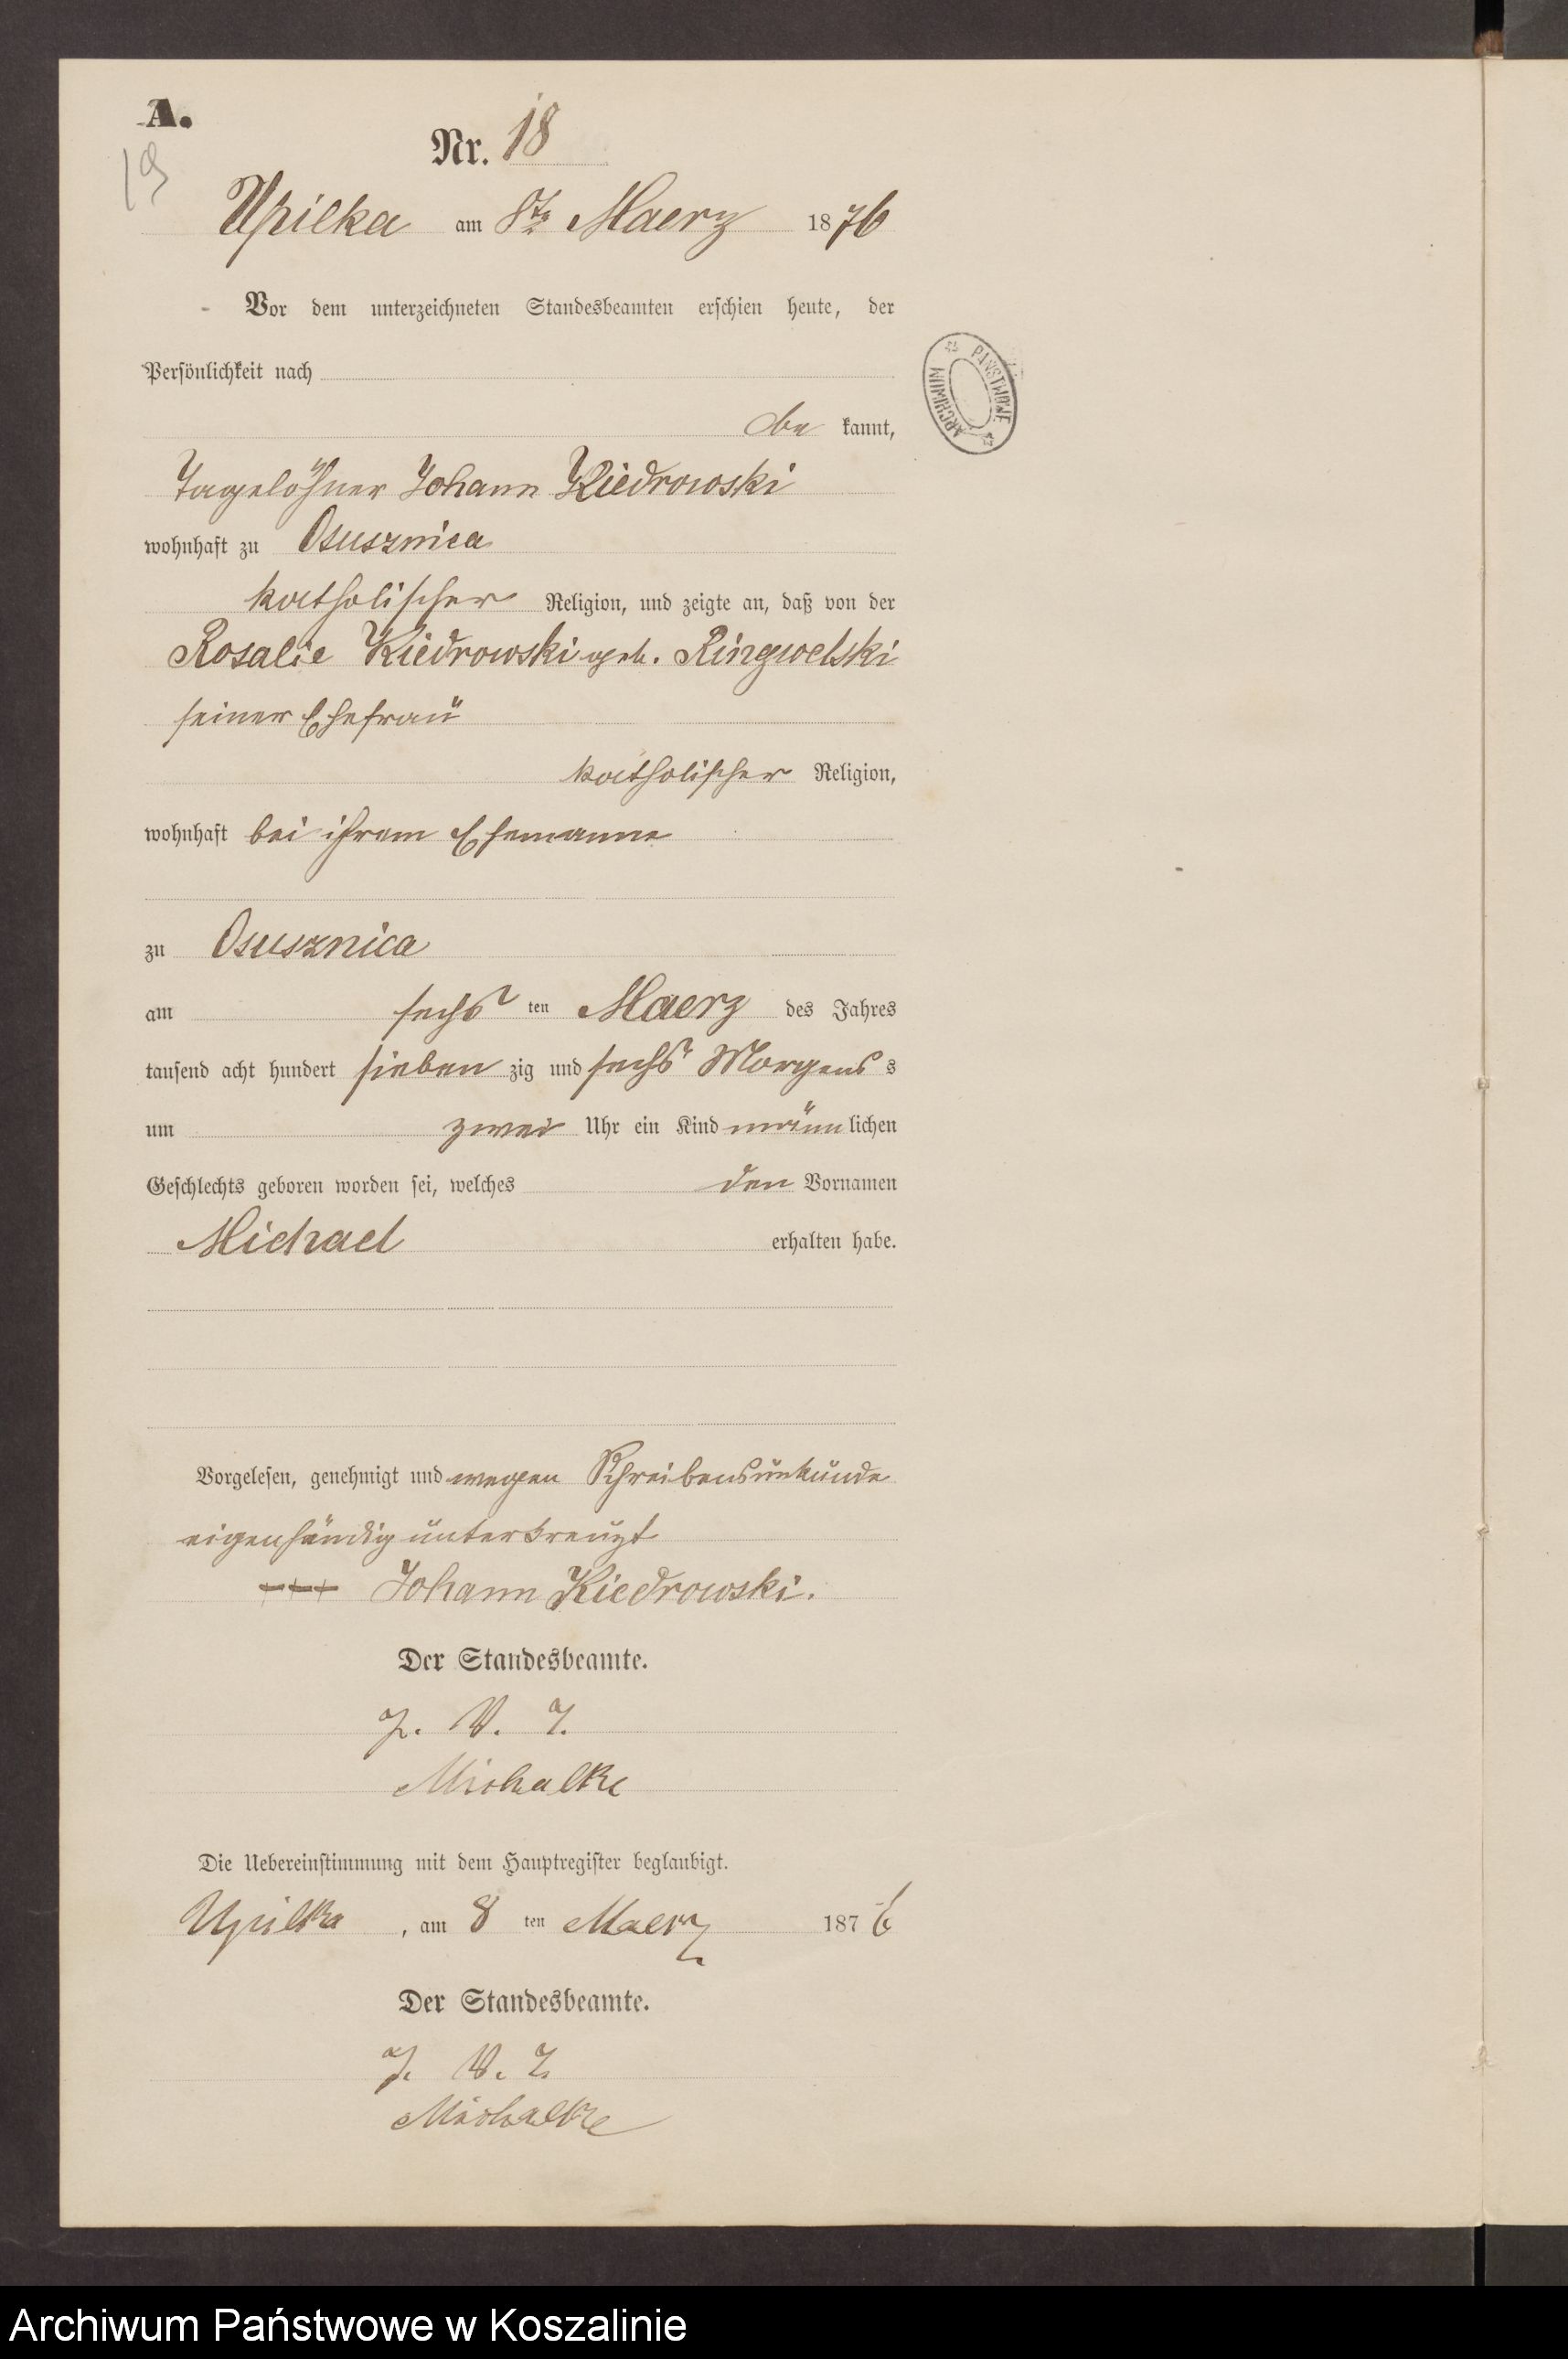 A.
19
Nr. 18
Upilka am 8ten Maerz 1876
Vor dem unterzeichneten Standesbeamten erschien heute, der
Persönlichkeit nach
be kannt,
Tagelöhner Johann Kiedrowski
wohnhaft zu Osusznica
katholischer Religion, und zeigte an, daß von der
Rosalie Kiedrowski geb. Ringwelski
seiner Ehefrau
katholischer Religion,
wohnhaft bei ihrem Ehemanne
zu Osusznica
am sechs ten Maerz des Jahres
tausend acht hundert sieben zig und sechs Morgens s
um zwei Uhr ein Kind männ lichen
Geschlechts geboren worden sei, welches den Vornamen
Michael erhalten habe.
Vorgelesen, genehmigt und wegen Schreibensunkunde
eigenhändig unterkreuzt
+++ Johann Kiedrowski.
Der Standesbeamte.
J. V. T.
Michalke
Die Uebereinstimmung mit dem Hauptregister beglaubigt.
Upilka, am 8 ten Maerz 1876
Der Standesbeamte.
J. V. T.
Michalke
ARCHIWUM PAŃSTWOWE
Archiwum Państwowe w Koszalinie